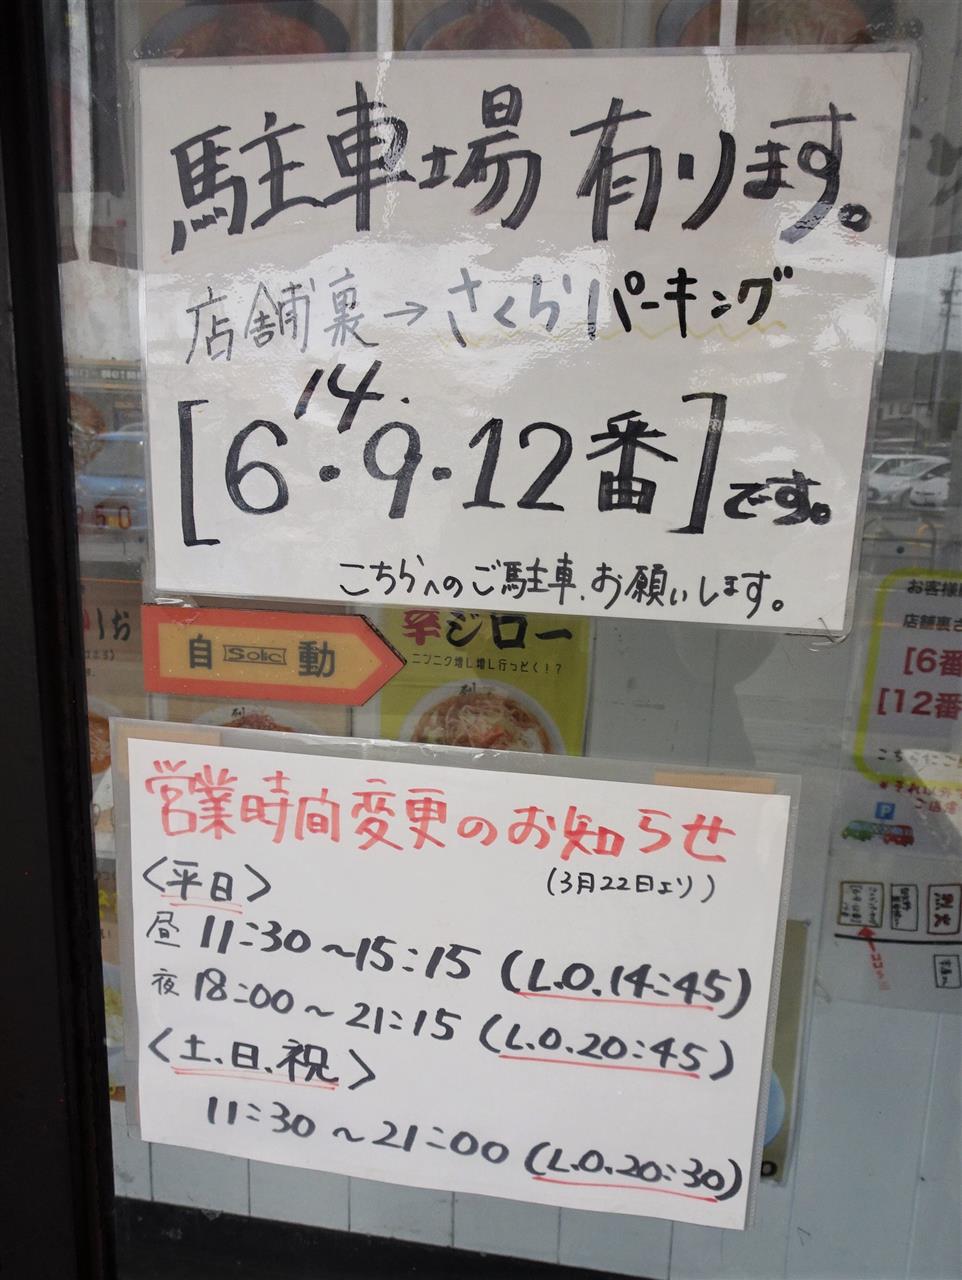 駐車場 有ります。
店舗裏→さくらパーキング
14.
[6・9・12番]です。
こちらへのご駐車、お願いします。
自 Solic 動
辛ジロー
ニンニク増し増し行っとく!?
お客様
店舗裏さ
[6番
[12番
P
烈火
営業時間変更のお知らせ
(3月22日より)
<平日>
昼 11:30~15:15 (L.O.14:45)
夜 18:00~21:15 (L.O.20:45)
<土.日.祝>
11:30~21:00 (L.O.20:30)